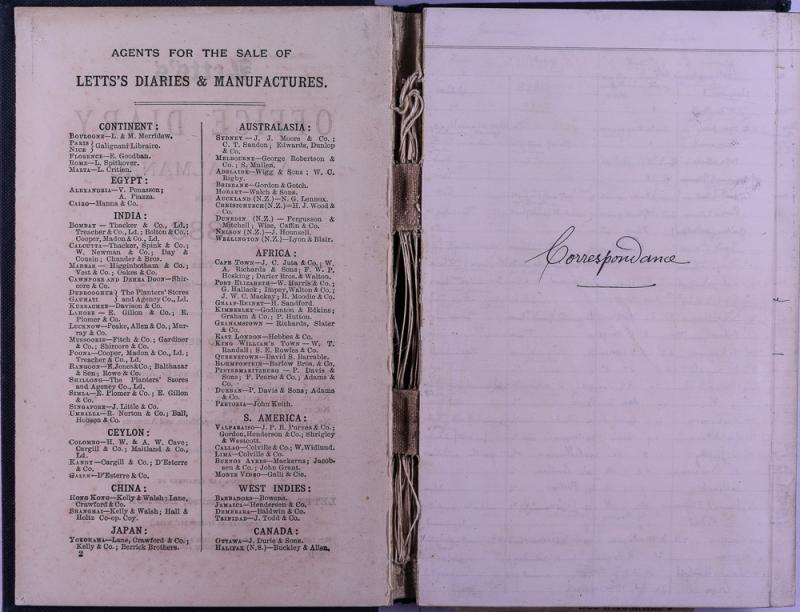 AGENTS FOR THE SALE OF
LETTS'S DIARIES & MANUFACTURES.
CONTINENT:
BOULOGNE—L. & M. Merridew.
PARIS } Galignani Libraire.
NICE }
FLORENCE—E. Goodban.
ROME—L. Spithover.
MALTA—L. Critien.
EGYPT:
ALEXANDRIA—V. Penasson;
A. Piazza.
CAIRO—Hanna & Co.
INDIA:
BOMBAY — Thacker & Co., Ld.;
Treacher & Co., Ld.; Bolton & Co.,
Cooper, Madon & Co., Ld.
CALCUTTA—Thacker, Spink & Co.;
W. Newman & Co.; Day &
Cousin; Chunder & Bros.
MADRAS — Higginbotham & Co.;
Vest & Co.; Oakes & Co.
CAWNPORE AND DEHRA DOON—Shir-
core & Co.
DEBROOGHUR } The Planters' Stores
GAUHATI } and Agency Co., Ld.
KURRACHEE—Davison & Co.
LAHORE — E. Gillon & Co.; R.
Plomer & Co.
LUCKNOW—Peake, Allen & Co.; Mur-
ray & Co.
MUSSOORIE—Fitch & Co.; Gardiner
& Co.; Shircore & Co.
POONA—Cooper, Madon & Co., Ld.;
Treacher & Co., Ld.
RANGOON—E. Jones & Co.; Balthazar
& Son; Rowe & Co.
SHILLONG—The Planters' Stores
and Agency Co., Ld.
SIMLA—E. Plomer & Co.; E. Gillon
& Co.
SINGAPORE—J. Little & Co.
UMBALLA—R. Norton & Co.; Ball,
Hobson & Co.
CEYLON:
COLOMBO—H. W. & A. W. Cave;
Cargill & Co.; Maitland & Co.,
Ld.
KANDY—Cargill & Co.; D'Esterre
& Co.
GALLE—D'Esterre & Co.
CHINA:
HONG KONG—Kelly & Walsh; Lane,
Crawford & Co.
SHANGHAI—Kelly & Walsh; Hall &
Holtz Co-op. Coy.
JAPAN:
YOKOHAMA—Lane, Crawford & Co.;
Kelly & Co.; Berrick Brothers.
2
AUSTRALASIA:
SYDNEY — J. J. Moore & Co.;
C. T. Sandon; Edwards, Dunlop
& Co.
MELBOURNE—George Robertson &
Co.; S. Mullen.
ADELAIDE—Wigg & Sons; W. C.
Rigby.
BRISBANE—Gordon & Gotch.
HOBART—Walch & Sons.
AUCKLAND (N.Z.)—N. G. Lennox.
CHRISTCHURCH (N.Z.)—H. J. Wood &
Co.
DUNEDIN (N.Z.) — Fergusson &
Mitchell; Wise, Caffin & Co.
NELSON (N.Z.)—J. Hounsell.
WELLINGTON (N.Z.)—Lyon & Blair.
AFRICA:
CAPE TOWN—J. C. Juta & Co.; W.
A. Richards & Sons; F. W. P.
Hosking; Darter Bros. & Walton.
PORT ELIZABETH—W. Harris & Co.;
G. Hallack; Impey, Walton & Co.;
J. W. C. Mackay; R. Moodie & Co.
GRAAF-REINET—H. Sandford.
KIMBERLEY—Godlonton & Edkins;
Graham & Co.; P. Hutton.
GRAHAMSTOWN — Richards, Slater
& Co.
EAST LONDON—Hebbes & Co.
KING WILLIAM'S TOWN — W. T.
Randall; S. E. Rowles & Co.
QUEENSTOWN—David S. Barrable.
BLOEMFONTEIN—Barlow Bros. & Co.
PIETERMARITZBURG — P. Davis &
Sons; F. Pearse & Co.; Adams &
Co.
DURBAN—P. Davis & Sons; Adams
& Co.
PRETORIA—John Keith.
S. AMERICA:
VALPARAISO—J. P. B. Purves & Co.;
Gordon, Henderson & Co.; Shrigley
& Westcott.
CALLAO—Colville & Co.; W. Widlund.
LIMA—Colville & Co.
BUENOS AYRES—Mackerns; Jacob-
sen & Co.; John Grant.
MONTE VIDEO—Galli & Cie.
WEST INDIES:
BARBADOES—Bowens.
JAMAICA—Henderson & Co.
DEMERARA—Baldwin & Co.
TRINIDAD—J. Todd & Co.
CANADA:
OTTAWA—J. Durie & Sons.
HALIFAX (N.S.)—Buckley & Allen.
Correspondance